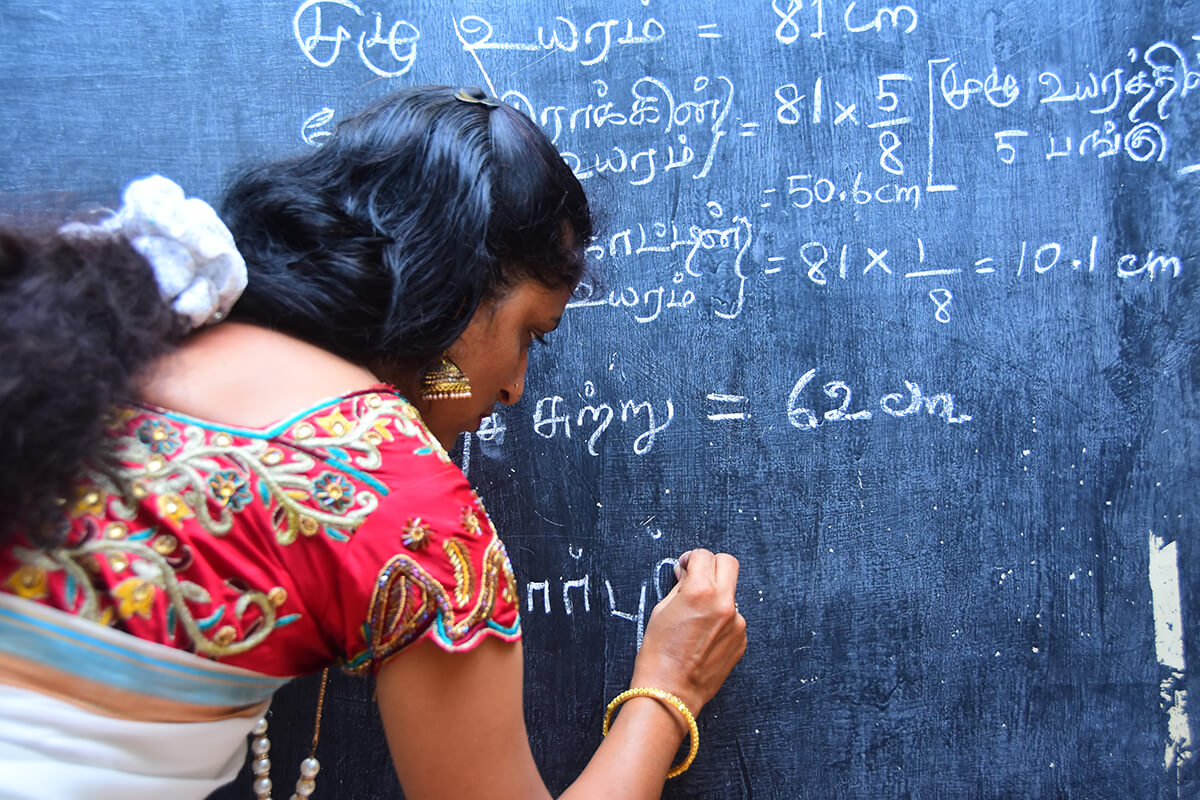 முழு உயரம் = 81 cm
ராக்கின் உயரம் = 81 × 5/8 [முழு உயரத்தில் 5 பங்கு
= 50.6cm
உயரம் = 81 × 1/8 = 10.1 cm
சுற்று = 62 cm